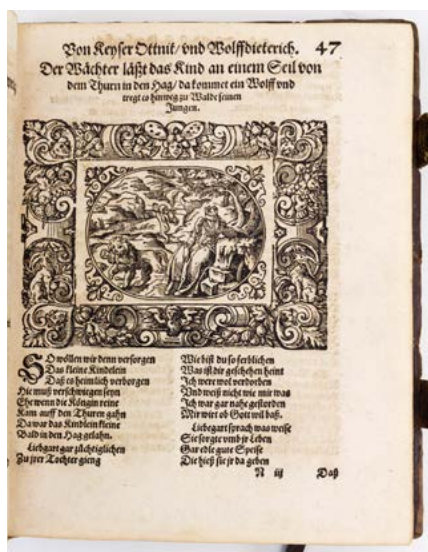 Von Keyser Ottnit/ vnd Wolffdieterich. 47
Der Wächter läßt das Kind an einem Seil von
dem Thurn in den Hag/ da kommet ein Wolff vnd
tregt es hinweg zu Walde seinen
Jungen.
SO wöllen wir denn versorgen
Das kleine Kindelein
Daß es heimlich verborgen
Hie muß verschwiegen seyn
Ehe wenn die Königin reine
Kam auff den Thuren gahn
Da war das Kindlein kleine
Bald in den Hag gelahn.
Liebgart gar züchtiglichen
Zu jrer Tochter gieng
Wie bist du so ferblichen
Was ist dir geschehen heint
Ich were wol verdorben
Vnd weiß nicht wie mir was
Ich war gar nahe gestorben
Mir wirt ob Gott wil baß.
Liebegart sprach was weise
Sie sorgte vmb jr Leben
Gar edle gute Speise
Die hieß sie jr da geben
N iij Daß